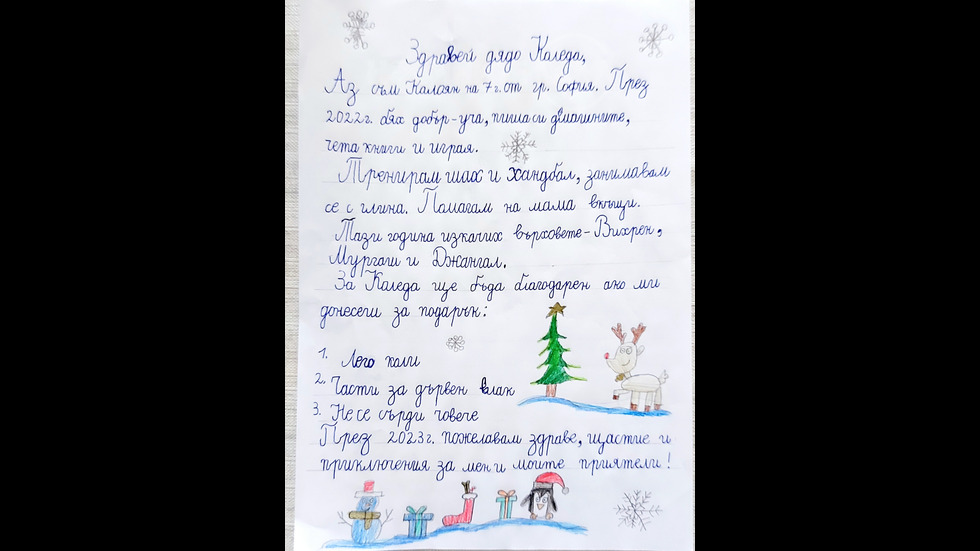 Здравей дядо Коледа,
Аз съм Калоян на 7 г. от гр. София. През
2022 г. бях добър - уча, пиша си домашните,
чета книги и играя.
Тренирам шах и хандбал, занимавам
се с глина. Помагам на мама вкъщи.
Тази година изкачих върховете - Вихрен,
Мургаш и Джангал.
За Коледа ще бъда благодарен ако ми
донесеш за подарък:
1. Лего коли
2. Части за дървен влак
3. Не се сърди човече
През 2023 г. пожелавам здраве, щастие и
приключения за мен и моите приятели!